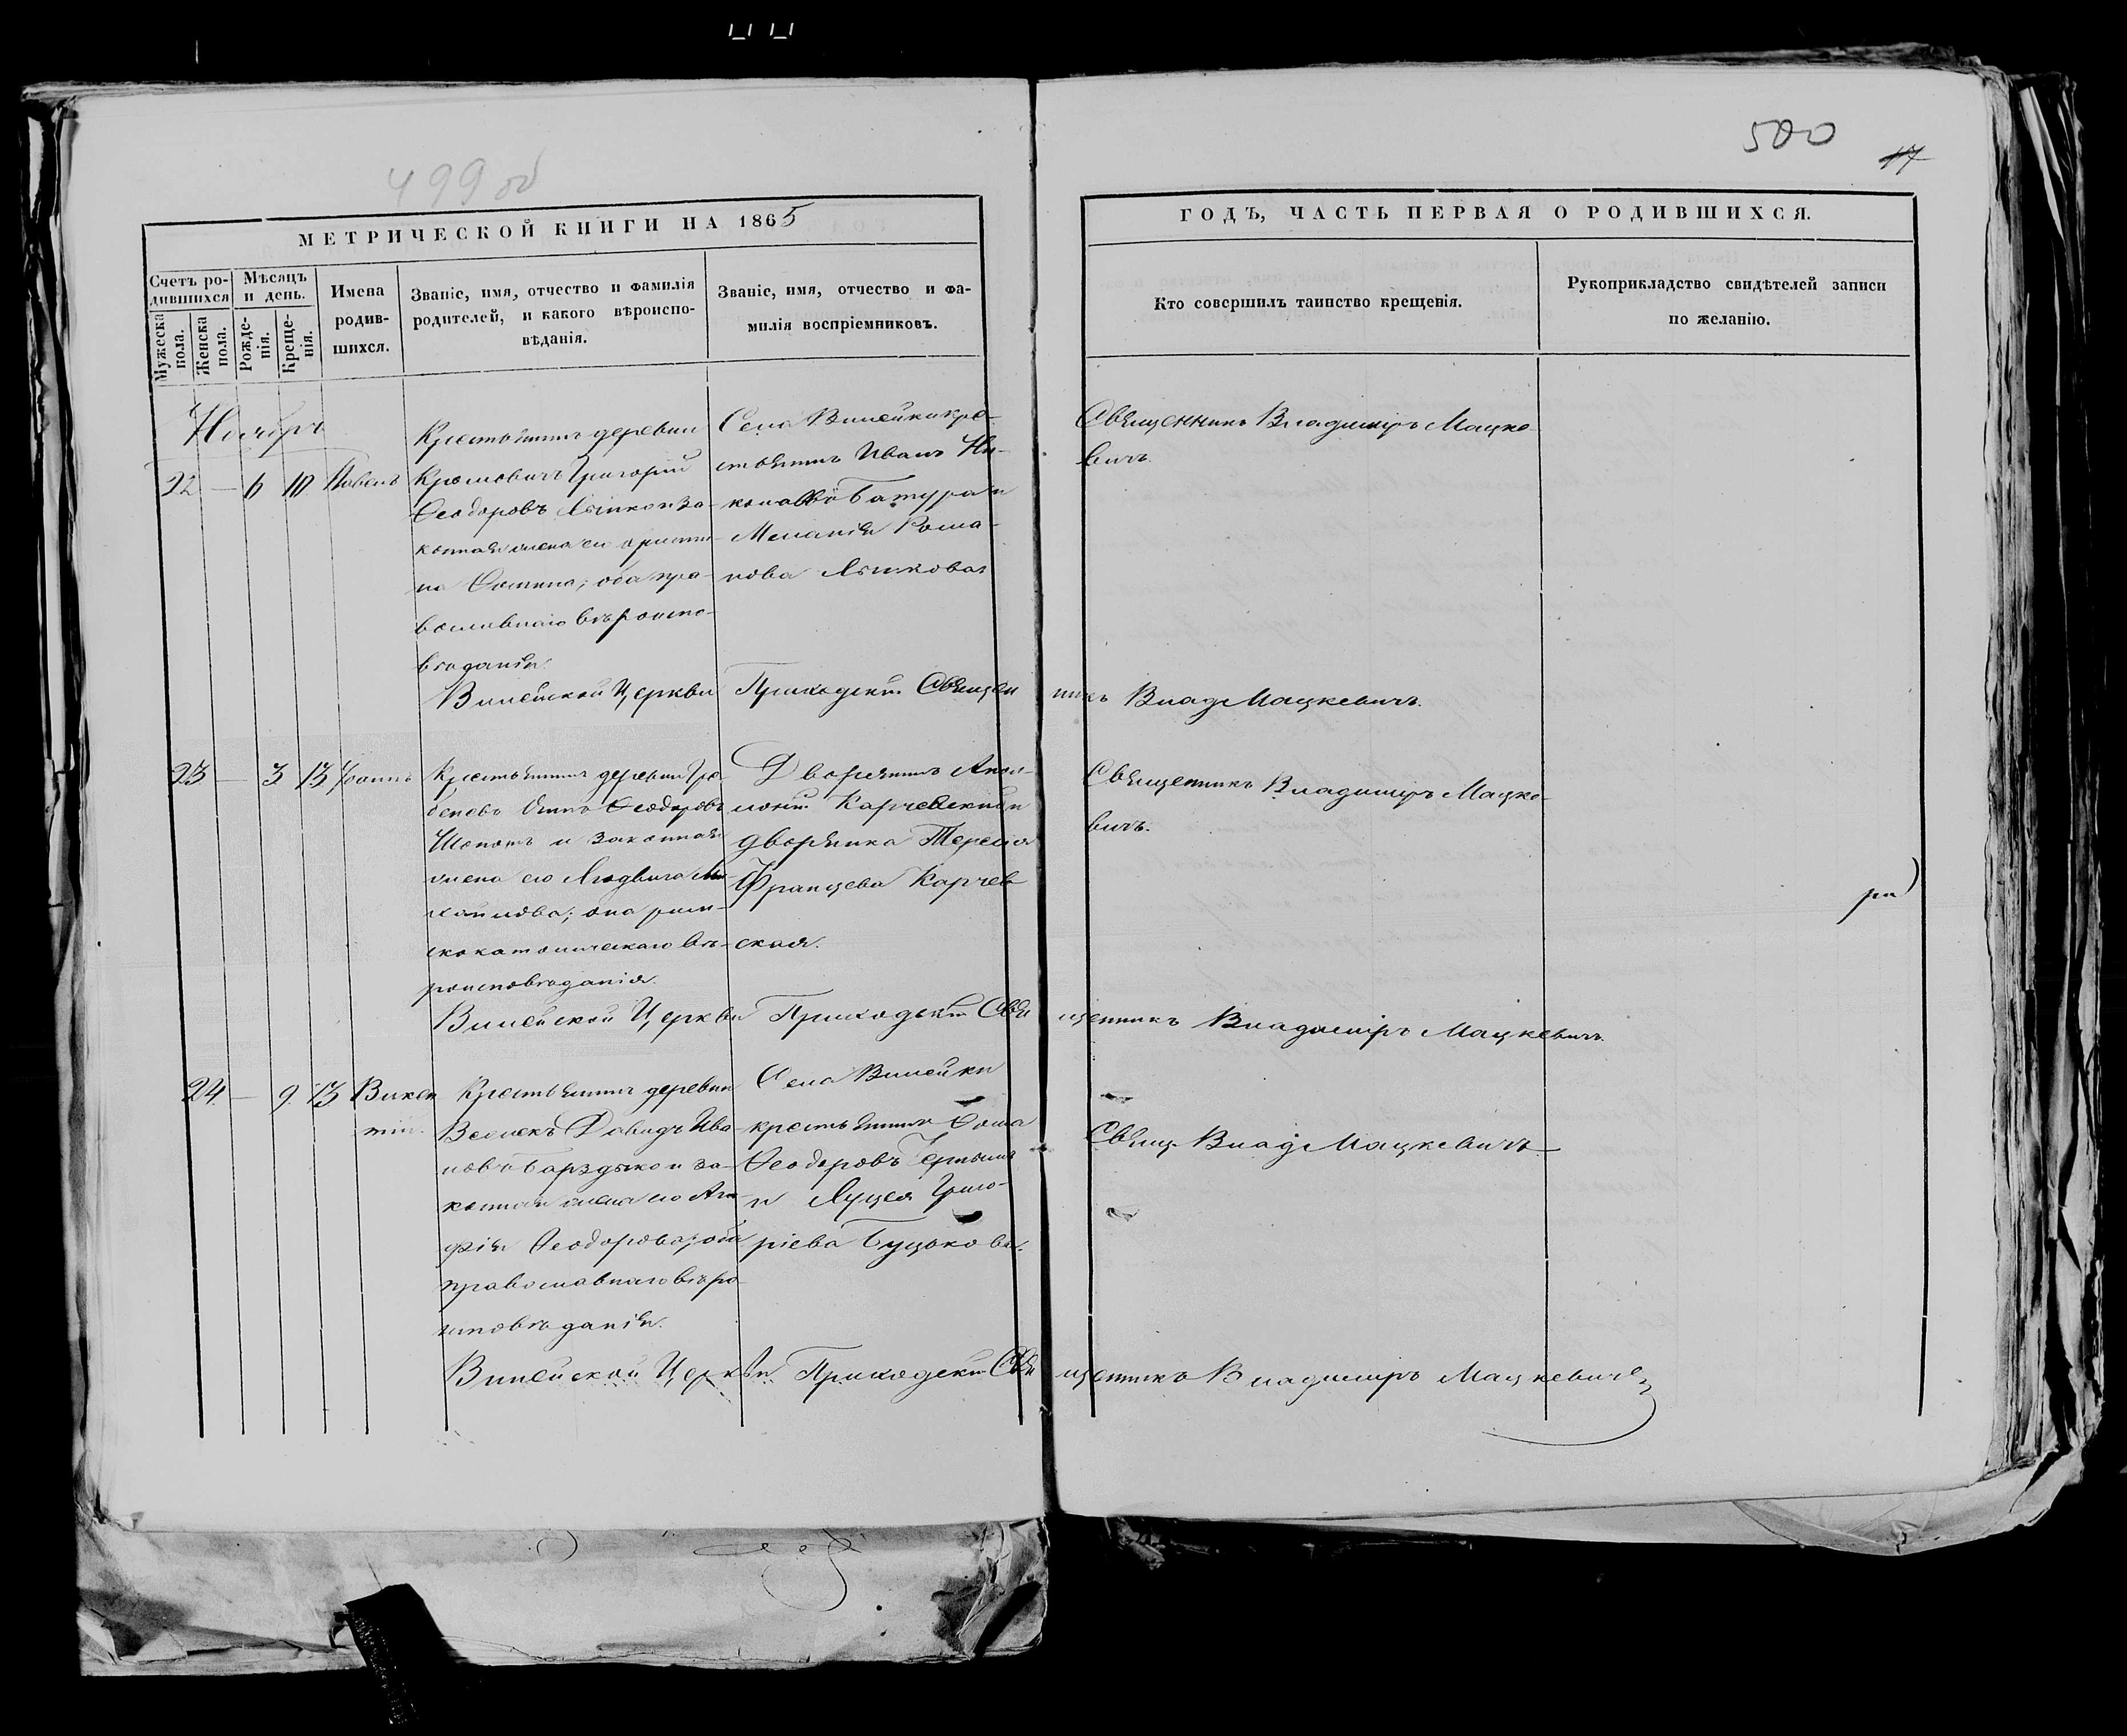 499 об
500
17
МЕТРИЧЕСКОЙ КНИГИ НА 1865
ГОДЪ, ЧАСТЬ ПЕРВАЯ О РОДИВШИХСЯ.
Счетъ ро-
дившихся
Мужеска
пола.
Женска
пола.
Мѣсяцъ
и день.
Рожде-
нія.
Креще-
нія.
Имена
родив-
шихся.
Званіе, имя, отчество и фамилія
родителей, и какого вѣроиспо-
вѣданія.
Званіе, имя, отчество и фа-
милія воспріемниковъ.
Кто совершилъ таинство крещенія.
Рукоприкладство свидѣтелей записи
по желанію.
Ноябрь
22 — 6 10 Павелъ
Крестьянинъ деревни
Григорій
Ѳеодоровъ и за-
конная жена его Христи-
на Ѳомина; оба пра-
вославнаго вѣроиспо-
вѣданія.
Села Вилейки кре-
стьянинъ Иванъ Ни-
колаевъ Батура и
Меланія Рома-
нова
Священникъ Владиміръ Мацке-
вичъ.
Вилейской Церкви Приходскій Священ
никъ Влад Мацкевичъ.
23 — 3 13 Іоаннъ
Крестьянинъ деревни Гре-
Ѳеодоровъ
Шопотъ и законная
жена его Людвига Ми-
хайлова; она рим-
скокатолическаго вѣ-
роисповѣданія.
Дворянинъ Апол-
лоній Карчевскій и
дворянка Тересія
Францева Карчев
ская.
Священникъ Владиміръ Мацке-
вичъ.
Вилейской Церкви Приходскій Свя
щенникъ Владиміръ Мацкевичъ.
24 — 9 13 Викен
тій.
Крестьянинъ деревни
Давидъ Ива-
новъ и за-
конная жена его Ага-
фія Ѳеодорова; оба
православнаго вѣро-
исповѣданія.
Села Вилейки
крестьянинъ Ѳома
Ѳеодоровъ
и Луція Григо-
ріева Буцько ва.
Свящ. Влад Мацкевичъ
Вилейской Церкви Приходскій Свя
щенникъ Владиміръ Мацкевичъ